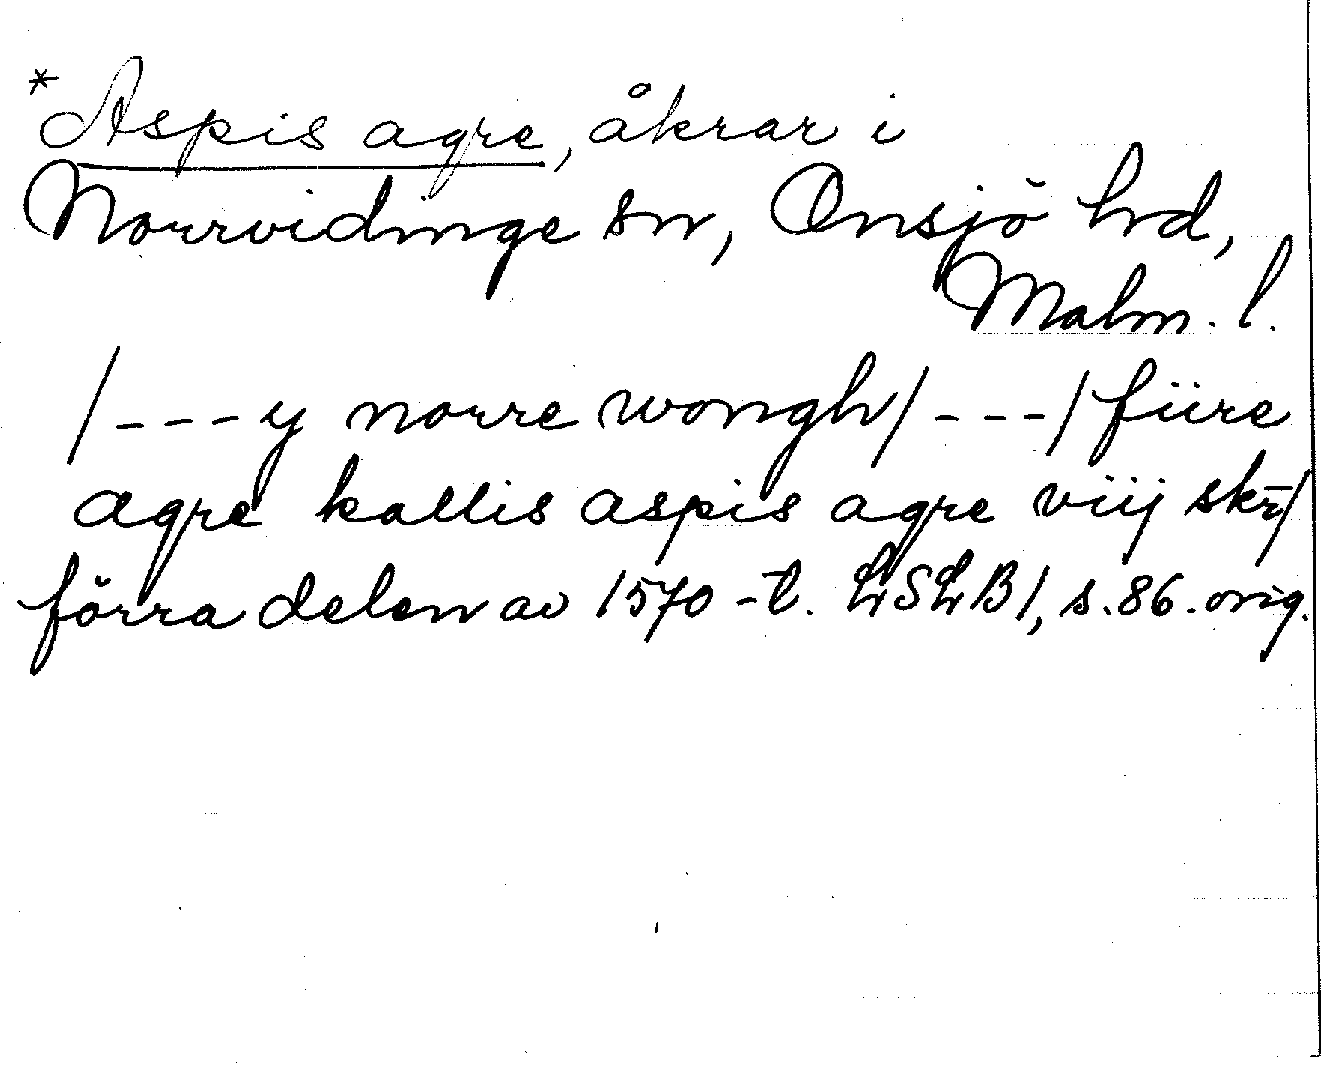 *Aspis agre, åkrar i
Norrvidinge sn, Onsjö hrd,
Malm. l.
/---y norre wongh/---/fiire
agre kallis aspis agre viij skr̄/
förra delen av 1570-t. LSLB1, s.86. orig.